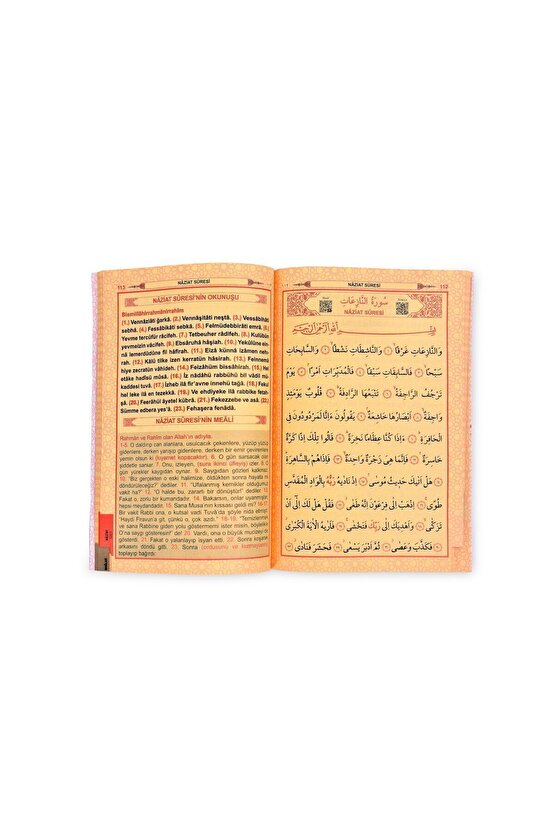 112
NÂZİAT SÛRESİ
سُورَةُ النَّازِعَاتِ
NÂZİAT SÛRESİ
بِسْمِ اللّٰهِ الرَّحْمٰنِ الرَّحِيمِ
وَالنَّازِعَاتِ غَرْقًا ﴿١﴾ وَالنَّاشِطَاتِ نَشْطًا ﴿٢﴾ وَالسَّابِحَاتِ
سَبْحًا ﴿٣﴾ فَالسَّابِقَاتِ سَبْقًا ﴿٤﴾ فَالْمُدَبِّرَاتِ اَمْرًا ﴿٥﴾ يَوْمَ
تَرْجُفُ الرَّاجِفَةُ ﴿٦﴾ تَتْبَعُهَا الرَّادِفَةُ ﴿٧﴾ قُلُوبٌ يَوْمَئِذٍ
وَاجِفَةٌ ﴿٨﴾ اَبْصَارُهَا خَاشِعَةٌ ﴿٩﴾ يَقُولُونَ ءَاِنَّا لَمَرْدُودُونَ فِي
الْحَافِرَةِ ﴿١٠﴾ ءَاِذَا كُنَّا عِظَامًا نَخِرَةً ﴿١١﴾ قَالُوا تِلْكَ اِذًا كَرَّةٌ
خَاسِرَةٌ ﴿١٢﴾ فَاِنَّمَا هِيَ زَجْرَةٌ وَاحِدَةٌ ﴿١٣﴾ فَاِذَا هُمْ بِالسَّاهِرَةِ
﴿١٤﴾ هَلْ اَتٰيكَ حَدِيثُ مُوسٰى ﴿١٥﴾ اِذْ نَادٰيهُ رَبُّهُ بِالْوَادِ الْمُقَدَّسِ
طُوًى ﴿١٦﴾ اِذْهَبْ اِلٰى فِرْعَوْنَ اِنَّهُ طَغٰى ﴿١٧﴾ فَقُلْ هَلْ لَكَ اِلٰى اَنْ
تَزَكّٰى ﴿١٨﴾ وَاَهْدِيَكَ اِلٰى رَبِّكَ فَتَخْشٰى ﴿١٩﴾ فَاَرٰيهُ الْاٰيَةَ الْكُبْرٰى
﴿٢٠﴾ فَكَذَّبَ وَعَصٰى ﴿٢١﴾ ثُمَّ اَدْبَرَ يَسْعٰى ﴿٢٢﴾ فَحَشَرَ فَنَادٰى ﴿٢٣﴾
113
NÂZİAT SÛRESİ
NÂZİAT SÛRESİ'NİN OKUNUŞU
Bismillâhirrahmânirrahîm
(1.) Vennâziâti ğarkâ. (2.) Vennâşitâti neştâ. (3.) Vessâbihâti
sebhâ. (4.) Fessâbikâti sebkâ. (5.) Felmüdebbirâti emrâ. (6.)
Yevme tercüfür râcifeh. (7.) Tetbeuher râdifeh. (8.) Kulûbüy
yevmeizin vâcifeh. (9.) Ebsâruhâ hâşiah. (10.) Yekûlûne ein-
nâ lemerdûdûne fil hâfirah. (11.) Eizâ künnâ izâmen nehi-
rah. (12.) Kâlû tilke izen kerratün hâsirah. (13.) Feinnemâ
hiye zecratün vâhideh. (14.) Feizâhüm bissâhirah. (15.) Hel
etâke hadîsü mûsâ. (16.) İz nâdâhü rabbühû bil vâdil mü-
kaddesi tuvâ. (17.) İzheb ilâ fir'avne innehû tağâ. (18.) Fekul
hel leke ilâ en tezekkâ. (19.) Ve ehdiyeke ilâ rabbike fetah-
şâ. (20.) Feerâhül âyetel kübrâ. (21.) Fekezzebe ve asâ. (22.)
Sümme edbera yes'â. (23.) Fehaşera fenâdâ.
NÂZİAT SÛRESİ'NİN MEÂLİ
Rahmân ve Rahîm olan Allah'ın adıyla.
1-5. O daldırıp can alanlara, usulcacık çekenlere, yüzüp yüzüp
gidenlere, derken yarışıp gidenlere, derken bir emir çevirenlere
yemin olsun ki (kıyamet kopacaktır). 6. O gün sarsacak olan
şiddetle sarsar. 7. Onu, izleyen, (sura ikinci üfleyiş) izler. 8. O
gün yürekler kaygıdan oynar. 9. Saygısından gözleri kalkmaz.
10. "Biz gerçekten o eski halimize, öldükten sonra hayata mı
döndürüleceğiz?" dediler. 11. "Ufalanmış kemikler olduğumuz
vakit ha?" 12. "O hâlde bu, zararlı bir dönüştür!" dediler. 13.
Fakat o, zorlu bir kumandadır. 14. Bakarsın, onlar uyanmıştır,
hepsi meydandadır. 15. Sana Musa'nın kıssası geldi ya? 16-17.
Bir vakit Rabbi ona, o kutsal vadi Tuvâ'da şöyle nida etmişti:
"Haydi Firavun'a git, çünkü o, çok azdı." 18-19. "Temizlenmek
ve sana Rabbine giden yolu göstermemi ister misin, böylelikle
O'na saygı gösterirsin" de! 20. Vardı, ona o büyük mucizeyi de
gösterdi. 21. Fakat o yalanlayıp isyan etti. 22. Sonra koşarak
arkasını döndü gitti. 23. Sonra (ordusunu ve kuvvetlerini)
toplayıp bağırdı: